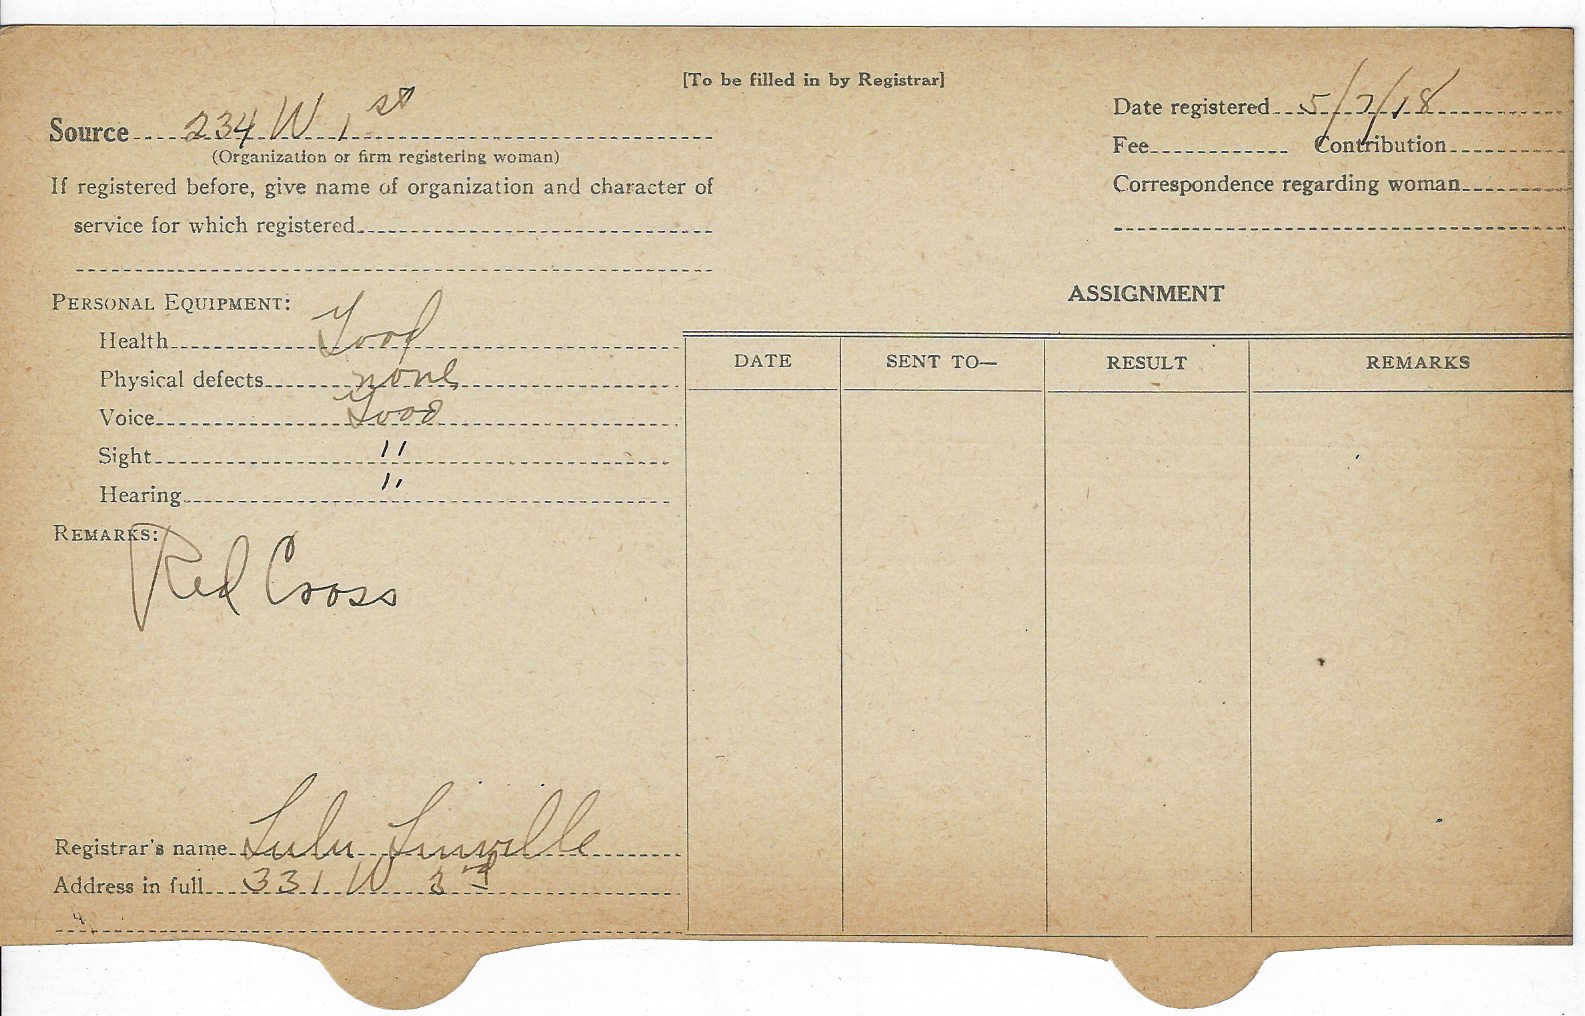 [To be filled in by Registrar]
Source 234 W 1st
(Organization or firm registering woman)
If registered before, give name of organization and character of
service for which registered
Date registered 5/7/18
Fee Contribution
Correspondence regarding woman
PERSONAL EQUIPMENT:
Health Good
Physical defects none
Voice Good
Sight "
Hearing "
REMARKS:
Red Cross
Registrar's name Lulu Linville
Address in full 331 W 3rd
4
ASSIGNMENT
DATE SENT TO— RESULT REMARKS